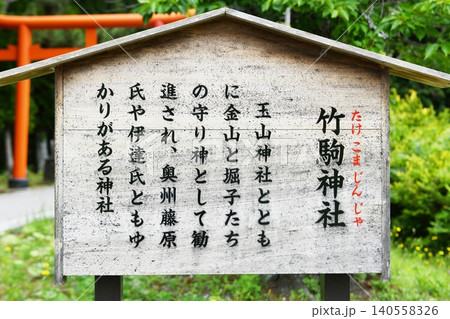 竹駒神社
たけこまじんじゃ
玉山神社ととも
に金山と堀子たち
の守り神として勧
進され、奥州藤原
氏や伊達氏ともゆ
かりがある神社
140558326